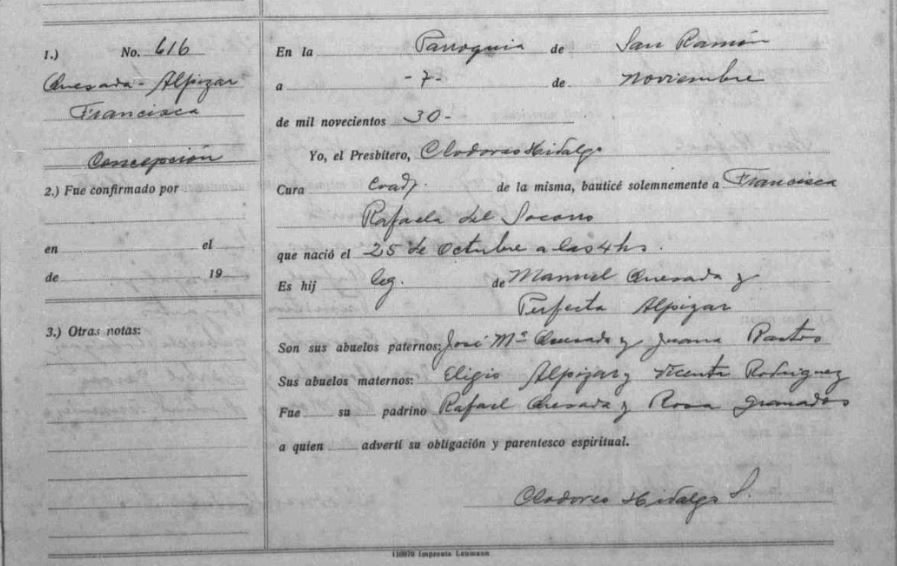 1.) No. 616
Quesada - Alpizar
Francisca
Concepción
2.) Fue confirmado por
en el
de 19
3.) Otras notas:
En la Parroquia de San Ramón
a -7- de noviembre
de mil novecientos 30-
Yo, el Presbítero, Clodoveo Hidalgo
Cura Coadj. de la misma, bauticé solemnemente a Francisca
Rafaela del Socorro
que nació el 25 de Octubre a las 4 hs.
Es hij leg. de Manuel Quesada y
Perfecta Alpizar
Son sus abuelos paternos: José Mª Quesada y Juana Pastos
Sus abuelos maternos: Eligio Alpizar y Vicenta Rodriguez
Fue su padrino Rafael Quesada y Rosa Granados
a quien advertí su obligación y parentesco espiritual.
Clodoveo Hidalgo S.
Imprenta Lehmann